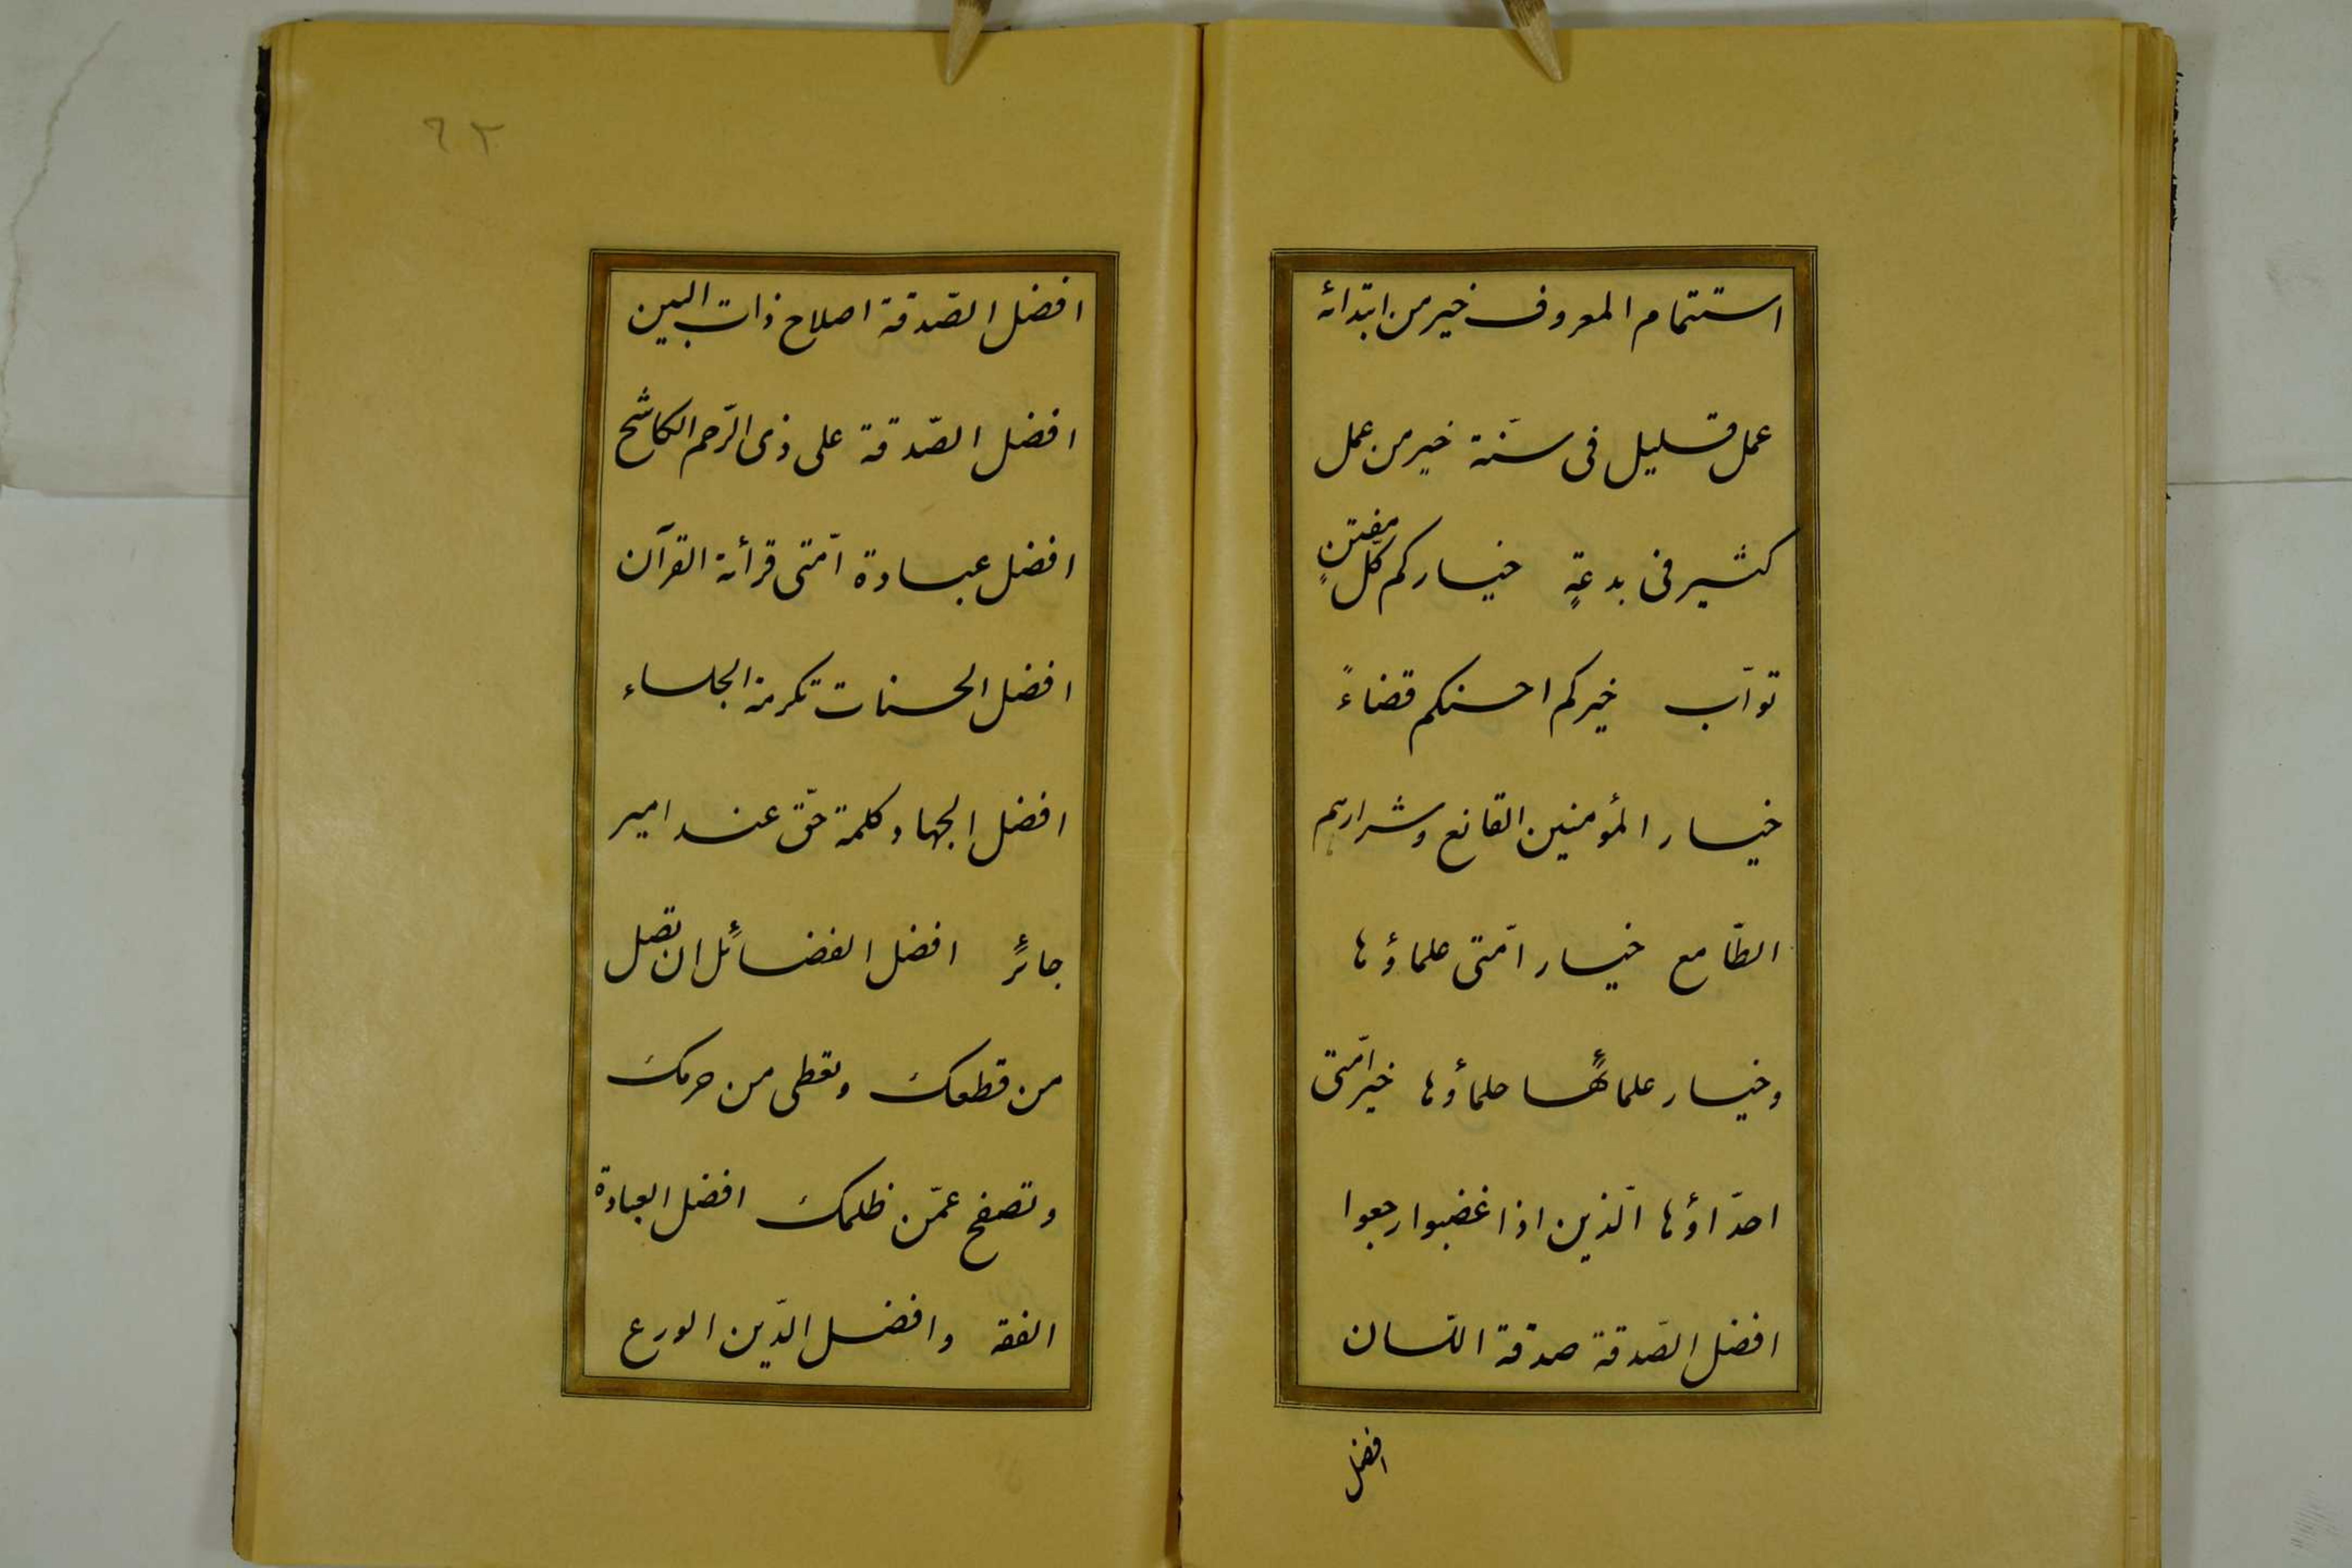 استتمام المعروف خير من ابتدائه
عمل قليل فى سنّة خير من عمل
كثير فى بدعةٍ خياركم كلّ مفتنٍ
توّاب خيركم احسنكم قضاءً
خيار المؤمنين القانع وشرارهم
الطّامع خيار امّتى علماؤها
وخيار علمائها حلماؤها خير امّتى
احدّاؤها الّذين اذا غضبوا رجعوا
افضل الصّدقة صدقة اللّسان
افضل
٦٢
افضل الصّدقة اصلاح ذات البين
افضل الصّدقة على ذى الرّحم الكاشح
افضل عبادة امّتى قرأئة القرآن
افضل الحسنات تكرمة الجلساء
افضل الجهاد كلمة حقّ عند امير
جائرٍ افضل الفضائل ان تصل
من قطعك وتعطى من حرمك
وتصفح عمّن ظلمك افضل العبادة
الفقه وافضل الدّين الورع